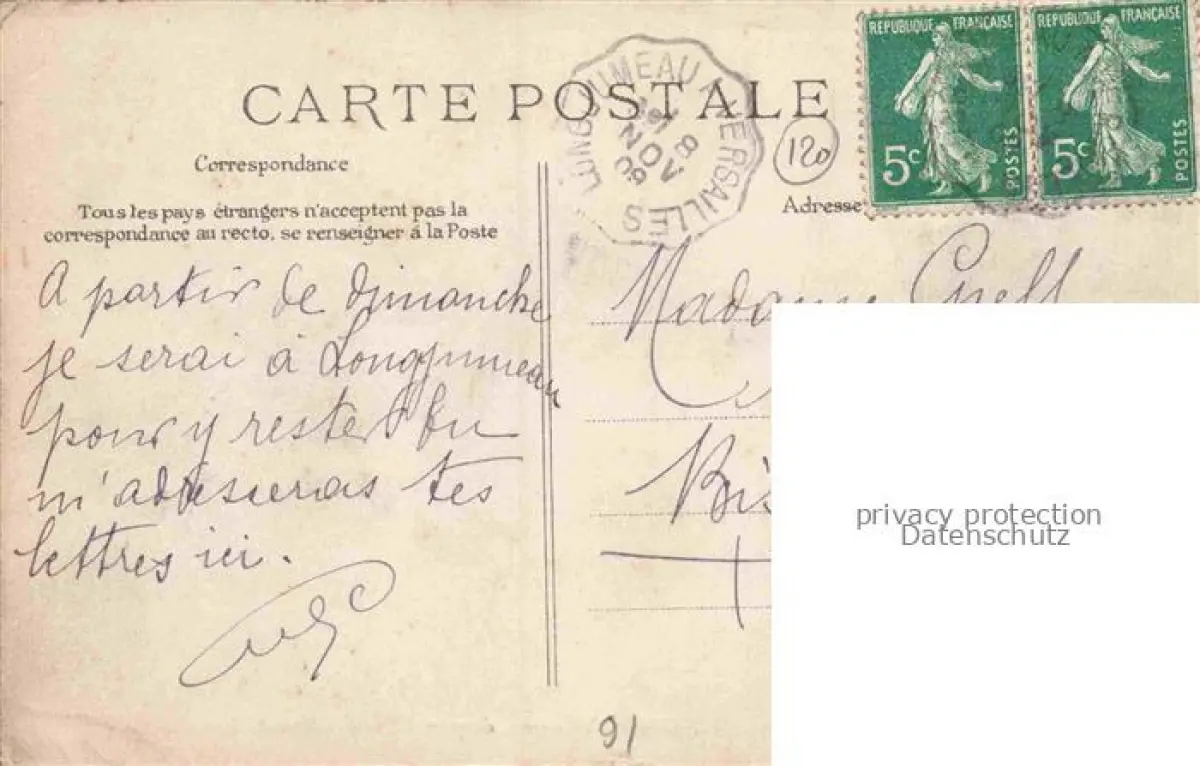 CARTE POSTALE
RÉPUBLIQUE FRANÇAISE
5c POSTES
RÉPUBLIQUE FRANÇAISE
5c POSTES
LONGJUMEAU A VERSAILLES
8
NOV
09
120
Correspondance
Adresse
Tous les pays étrangers n'acceptent pas la
correspondance au recto, se renseigner à la Poste
A partir de dimanche
je serai à Longjumeau
pour y rester tu
m'adresseras tes
lettres ici.
Madame
91
privacy protection
Datenschutz